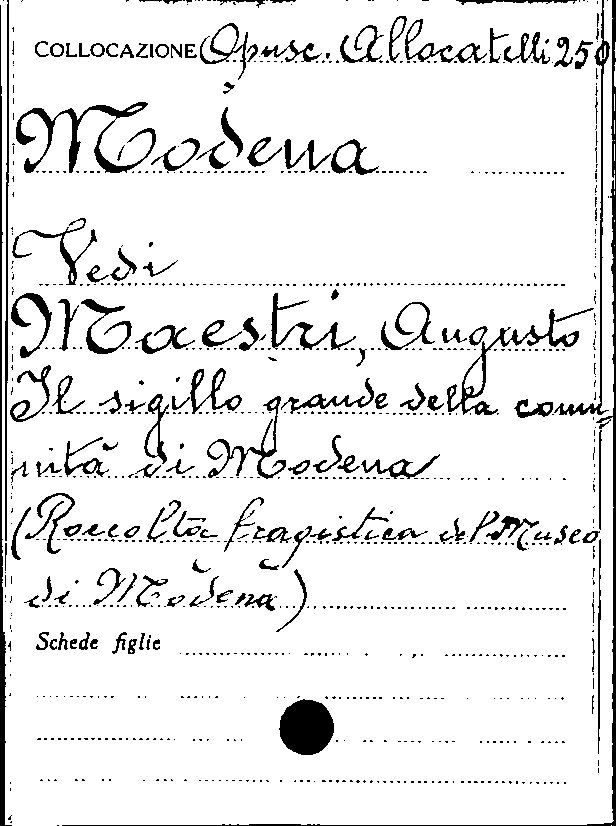 COLLOCAZIONE Opusc. Allocatelli 250
Modena
Vedi
Maestri, Augusto
Il sigillo grande della comu=
nità di Modena
(Raccolta fragistica del Museo
di Modena)
Schede figlie